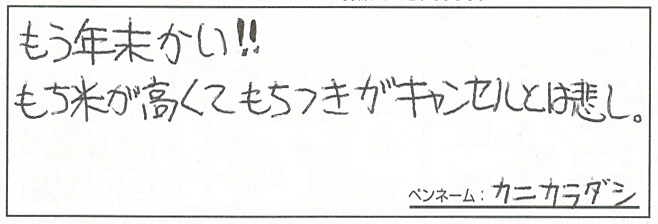 もう年末かい!!
もち米が高くてもちつきがキャンセルとは悲し。
ペンネーム：カニカラダシ